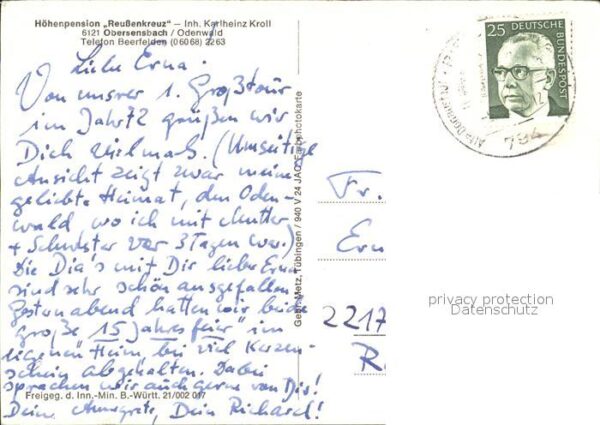 Höhenpension „Reußenkreuz" – Inh. Karlheinz Kroll
6121 Obersensbach / Odenwald
Telefon Beerfelden (06068) 2263
Liebe Erna.
Von unsrer 1. Großtour
im Jahr 72 grüßen wir
Dich vielmals. (Umseitige
Ansicht zeigt zwar meine
geliebte Heimat, den Oden-
wald, wo ich mit Mutter
+ Schwester vor 3 Tagen war.)
Die Dia's mit Dir liebe Erna
sind sehr schön ausgefallen.
Gestern abend hatten wir beide
große "15 Jahresfeier" im
eigenen Heim bei viel Kerzen-
schein abgehalten. Dabei
sprachen wir auch gerne von Dir!
Deine Annegrete, Dein Richard!
Freigeg. d. Inn.-Min. B.-Württ. 21/002 017
Gebr. Metz, Tübingen / 940 V 24 JAC Farbphotokarte
25 DEUTSCHE BUNDESPOST
Fr.
Ern
2217
R
privacy protection
Datenschutz